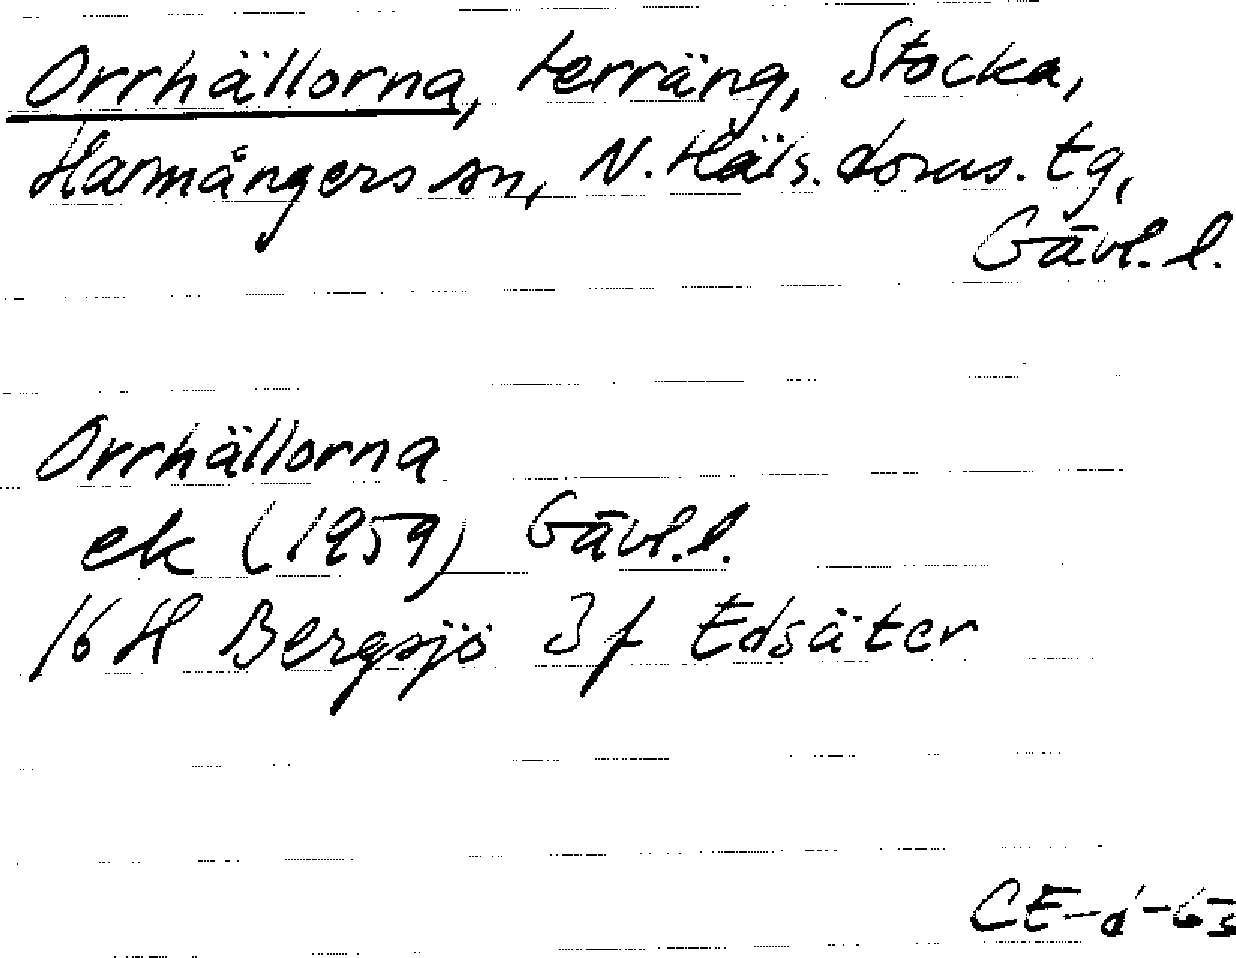 Orrhällorna, terräng, Stocka,
Harmångers sn, N. Häls. doms. tg,
Gävl. l.
Orrhällorna
ek (1959) Gävl. l.
16 H Bergsjö 3 f Edsäter
CE-d-63